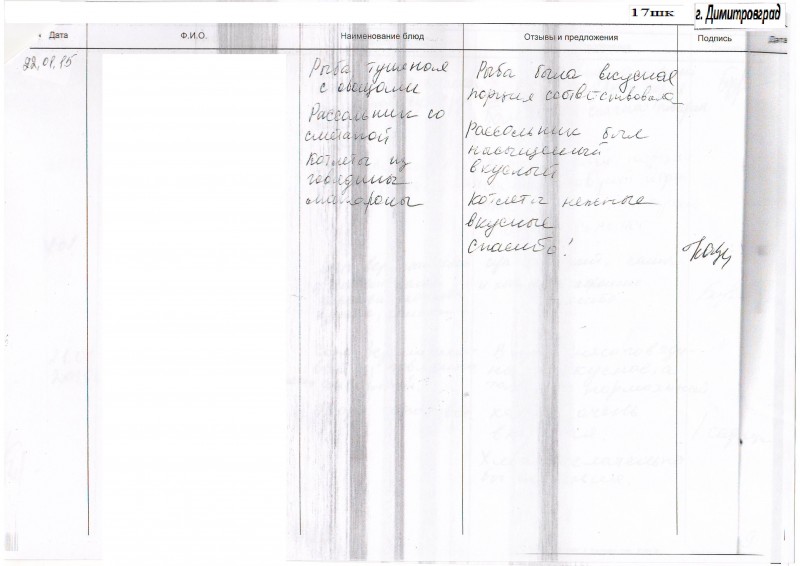 17шк
г. Димитровград
Дата
Ф.И.О.
Наименование блюд
Отзывы и предложения
Подпись
Дата
22.01.15
Рыба тушеная
с овощами
Рассольник со
сметаной
Котлеты из
говядины
макароны
Рыба была вкусная
порция соответствовала
Рассольник был
насыщенный
вкусный
котлеты нежные
вкусные
спасибо!